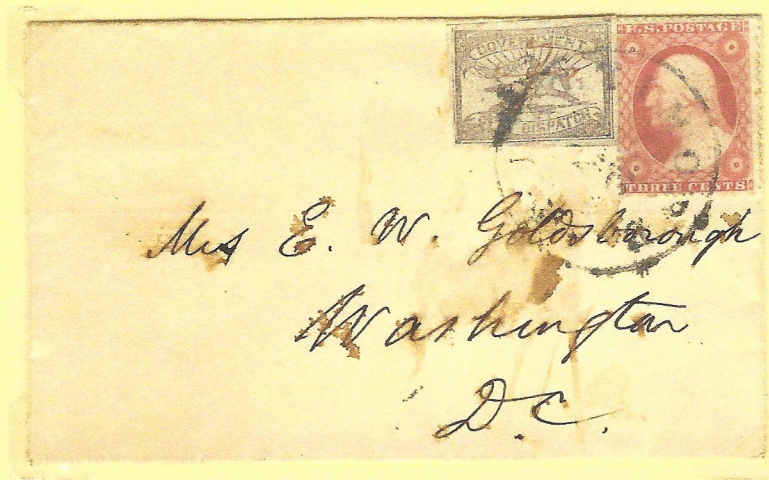 GOVERNMENT
DISPATCH
U.S. POSTAGE
THREE CENTS
Mrs E. W. Goldsborough
Washington
D.C.